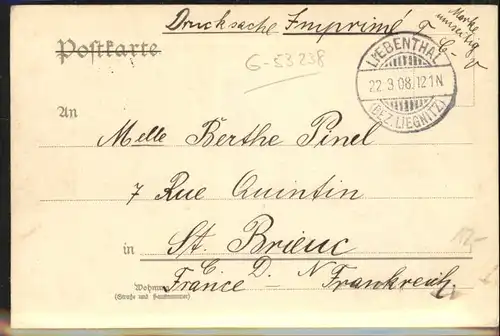 Drucksache Imprimé
Marke
umseitig
T C. V
Postkarte
G-53238
LIEBENTHAL
22 3 08. 12 1 N
(BEZ. LIEGNITZ)
An
Melle Berthe Pinel
7 Rue Quintin
in St. Brieuc
C. D. N
Wohnung
France Frankreich.
(Straße und Hausnummer)